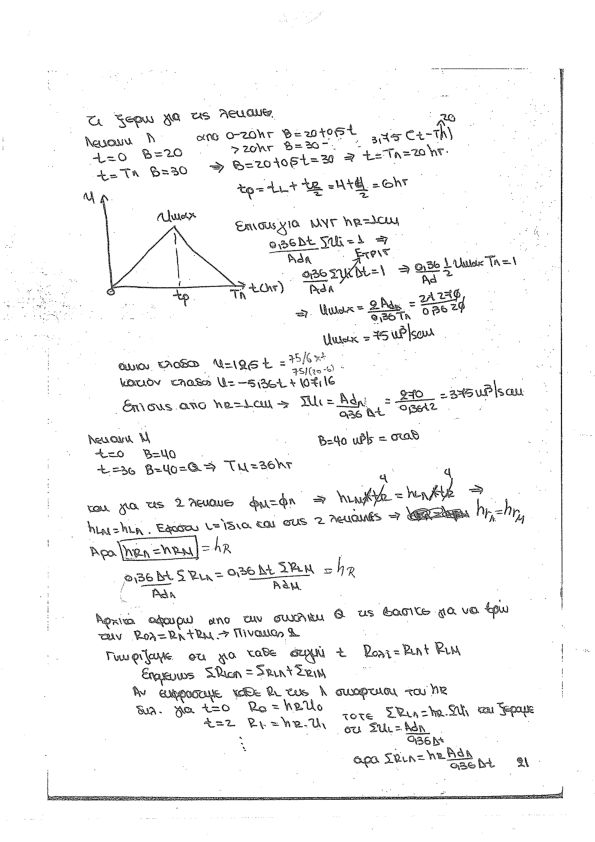 Τι ξερω για τις λεκανες.
Λεκανη Λ απο 0-20hr B=20+0,5t
>20hr B=30- 3,75(t-TΛ) 20
t=0 B=20
t=TΛ B=30 ⇒ B=20+0,5t=30 ⇒ t=TΛ=20hr.
tp=tL+tR/2=4+4/2=6hr
U
Umax
tp TΛ t(hr)
Επισης για ΜΥΓ hR=1cm
0,36Δt/AdΛ ΣUi=1 ⇒
ΕΤΡΙΓ
0,36/AdΛ ΣUiΔt=1 ⇒ 0,36/Ad 1/2 Umax TΛ=1
⇒ Umax = 2AdΛ/0,36TΛ = 2·270/0,36·20
Umax=75 m³/s/cm
ανιον κλαδο U=12,5t = 75/6 *t
75/(20-6)
κατιον κλαδο U=-5,36t+107,16
Επισης απο hR=1cm → ΣUi = AdΛ/0,36Δt = 270/0,36·2 = 375 m³/s/cm
Λεκανη M B=40 m³/s = σταθ
t=0 B=40
t=36 B=40=Q ⇒ TM=36hr
και για τις 2 λεκανες φM=φΛ ⇒ hLM/tR 4 = hLΛ/tR 4 ⇒
hLM=hLΛ. Εφοσον i=ίδια και στις 2 λεκάνες ⇒ hrΛ=hrM
Αρα hRΛ=hRM =hR
0,36Δt/AdΛ ΣRLΛ = 0,36Δt/AdM ΣRLM = hR
Αρχικα αφαιρω απο την συνολικη Q τις βασικες για να βρω
την Rολ=RΛ+RM → Πινακας 2
Γνωριζουμε οτι για καθε στιγμη t Rολi=RLΛ+RLM
Επομενως ΣRiολ=ΣRLΛ+ΣRiM
Αν εκφρασουμε καθε RL της Λ συναρτηση του hR
δηλ. για t=0 R0=hR U0
t=2 R1=hR.U1
⋮
τοτε ΣRLΛ=hR.ΣUi και ξερουμε
οτι ΣUi = AdΛ/0,36Δt
αρα ΣRLΛ=hR AdΛ/0,36Δt 21